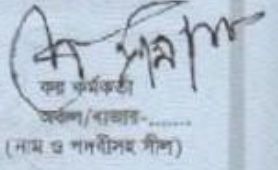 কর কর্মকর্তা
অঞ্চল/বাজার-........
(নাম ও পদবীসহ সীল)